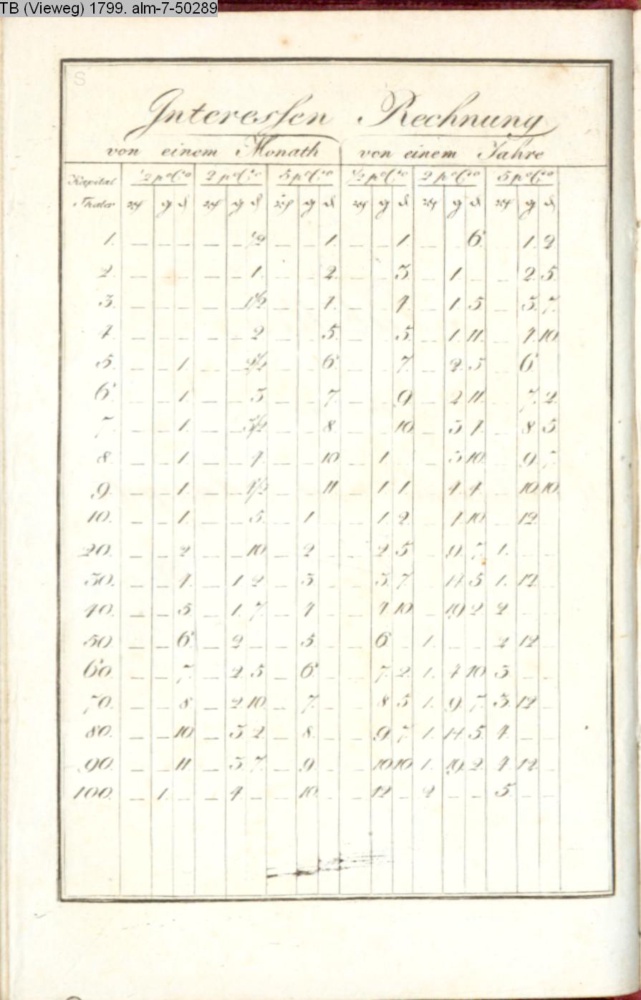 TB (Vieweg) 1799. alm-7-50289
Interessen Rechnung
von einem Monath von einem Jahre
Kapital ½ pC 2 pC 5 pC ½ pC 2 pC 5 pC
Thaler g d g d g d g d g d g d
1. — — — — — ½ — — 1. — — 1 — — 6 — 1 2
2. — — — — — 1. — — 2 — — 3 — 1 — — 2 5
3. — — — — — 1½ — — 4 — — 4 — 1 5 — 3 7
4. — — — — — 2 — — 5 — — 5 — 1 11 — 4 10
5. — — 1 — — 2½ — — 6 — — 7 — 2 5 — 6 —
6. — — 1 — — 3 — — 7 — — 9 — 2 11 — 7 2
7. — — 1 — — 3½ — — 8 — — 10 — 3 4 — 8 5
8. — — 1 — — 4 — — 10 — 1 — — 3 10 — 9 7
9. — — 1 — — 4½ — — 11 — 1 1 — 4 4 — 10 10
10. — — 1 — — 5 — 1 — — 1 2 — 4 10 — 12 —
20. — — 2 — — 10 — 2 — — 2 5 — 9 7 1. — —
30. — — 4 — 1 2 — 3 — — 3 7 — 14 5 1. 12 —
40. — — 5 — 1 7 — 4 — — 4 10 — 19 2 2 — —
50 — — 6 — 2 — — 5 — — 6 — 1. — — 2 12 —
60 — — 7 — 2 5 — 6 — — 7 2 1. 4 10 3 — —
70. — — 8 — 2 10 — 7 — — 8 5 1. 9 7 3 12 —
80. — — 10 — 3 2 — 8 — — 9 7 1. 14 5 4 — —
90. — — 11 — 3 7 — 9 — — 10 10 1. 19 2 4 12 —
100. — 1. — — 4 — — 10 — — 12 — 2 — — 5 — —